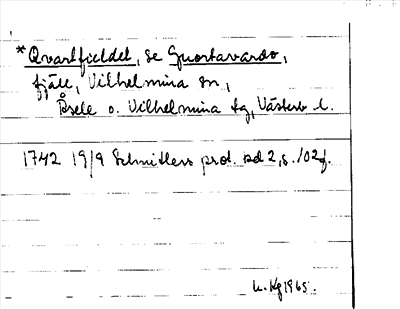 *Qvartfieldet, se Guortavardo,
fjäll, Vilhelmina sn,
Åsele o. Vilhelmina tg, Västerb. l.
1742 19/9 Schnitlers prot. bd 2, s. 102f.
u. Kg 1965.